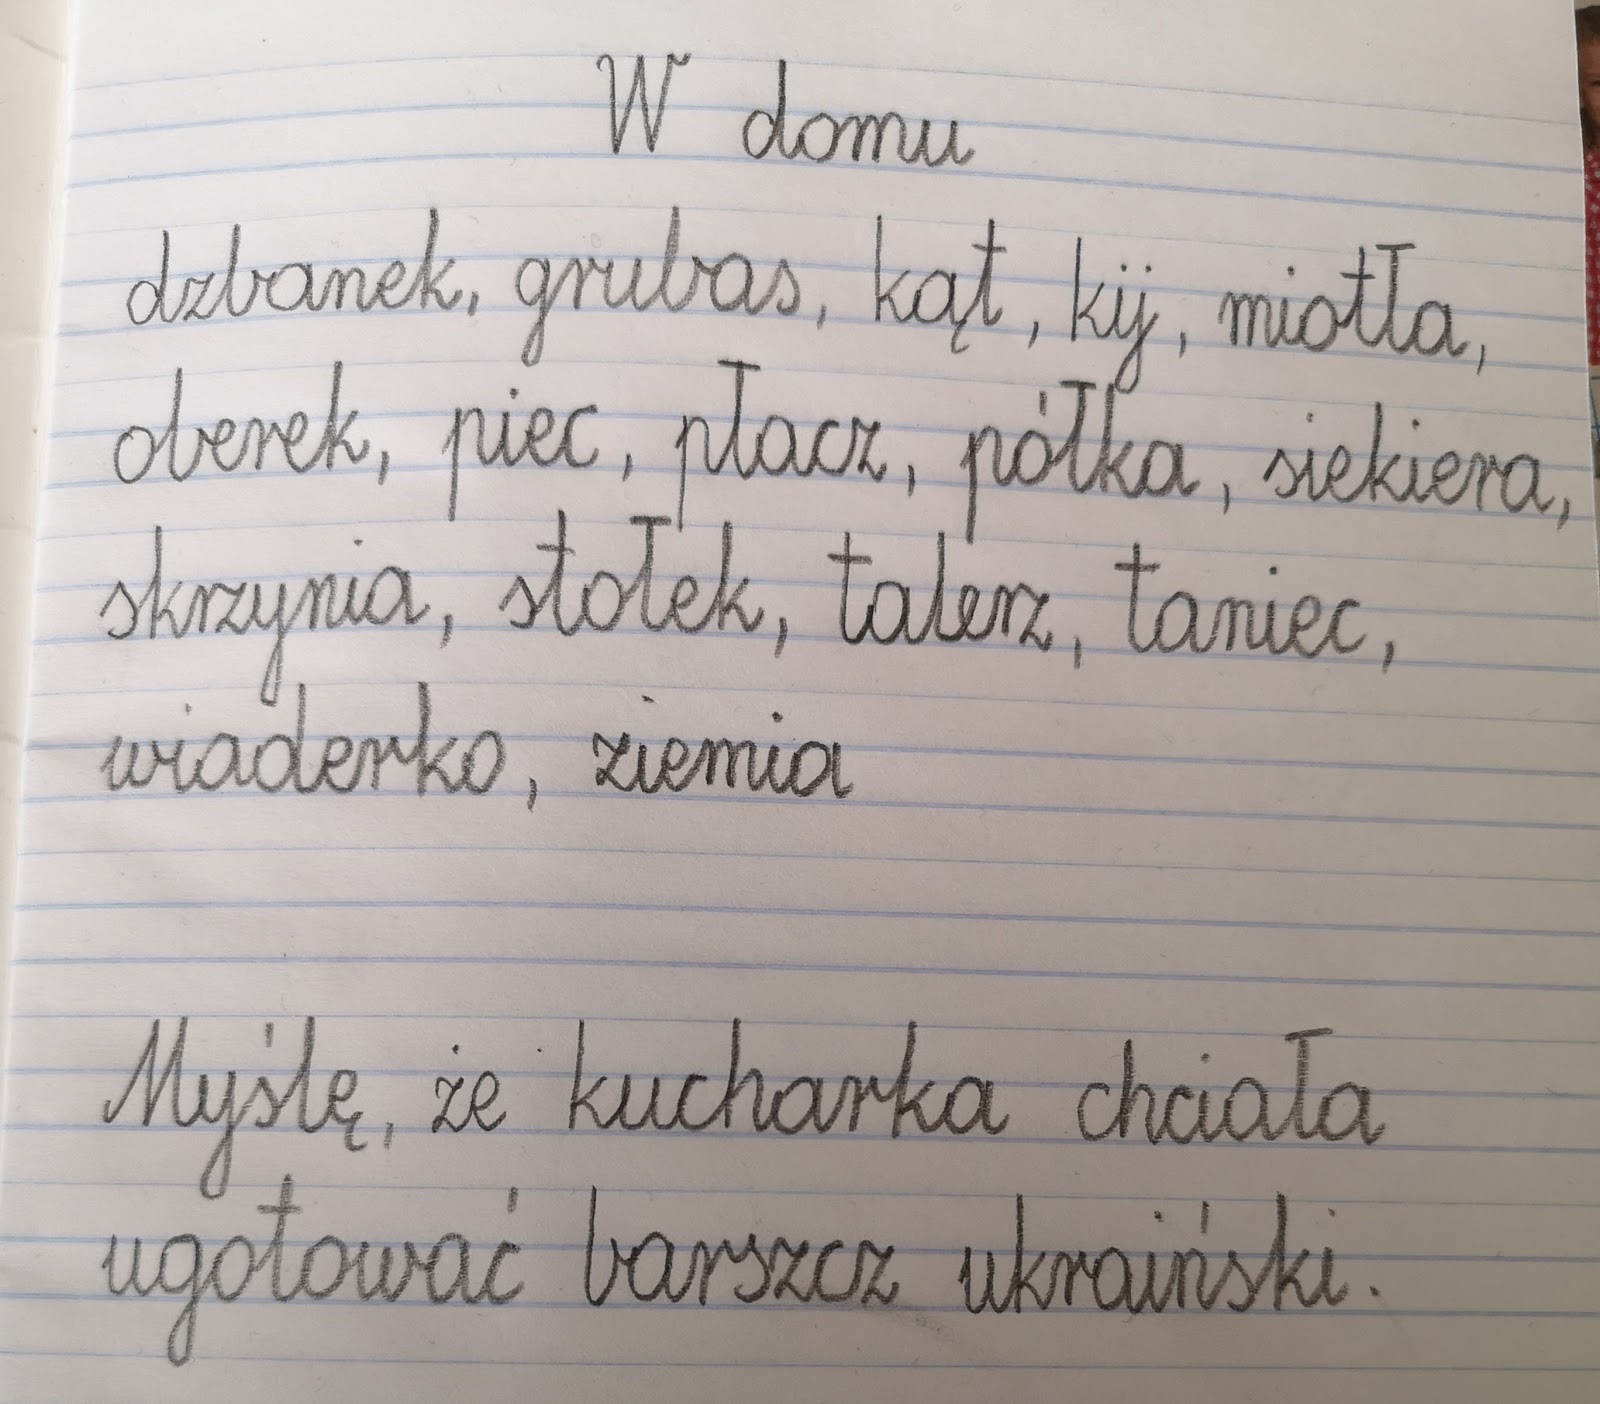 W domu
dzbanek, grubas, kąt, kij, miotła,
oberek, piec, płacz, półka, siekiera,
skrzynia, stołek, talerz, taniec,
wiaderko, ziemia
Myślę, że kucharka chciała
ugotować barszcz ukraiński.